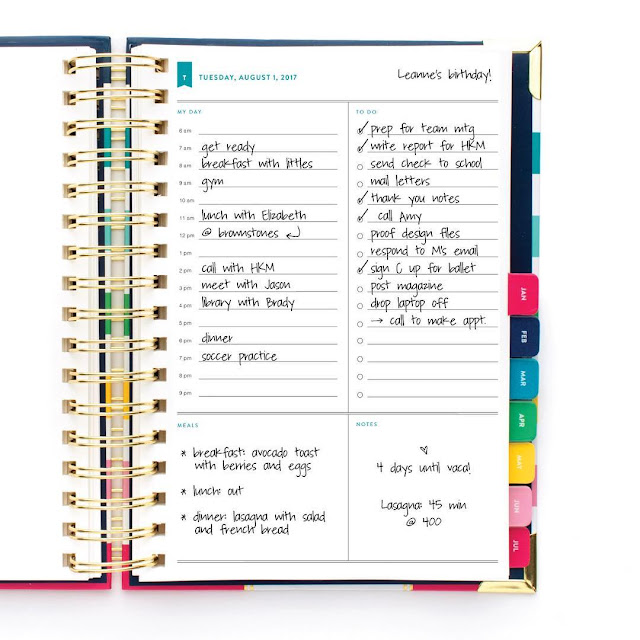 T TUESDAY, AUGUST 1, 2017
Leanne's birthday!
MY DAY
6 am
7 am get ready
8 am breakfast with littles
9 am gym
10 am
11 am lunch with Elizabeth
12 pm @ brownstones
1 pm
2 pm call with HKM
3 pm meet with Jason
4 pm library with Brady
5 pm
6 pm dinner
7 pm soccer practice
8 pm
9 pm
TO DO
✓ prep for team mtg
✓ write report for HKM
send check to school
mail letters
✓ thank you notes
✓ call Amy
proof design files
respond to M's email
✓ sign C up for ballet
post magazine
drop laptop off
→ call to make appt.
MEALS
* breakfast: avocado toast
with berries and eggs
* lunch: out
* dinner: lasagna with salad
and french bread
NOTES
4 days until vaca!
Lasagna: 45 min
@ 400
JAN
FEB
MAR
APR
MAY
JUN
JUL